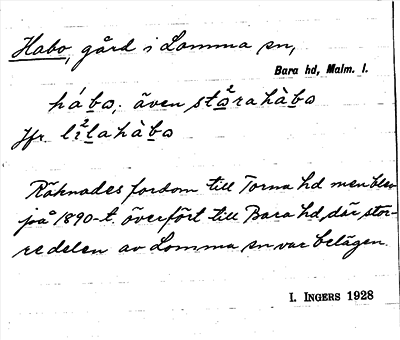 Habo, gård i Lomma sn,
Bara hd, Malm. l.
hábo; även sta²rahàbo
Jfr. li²lahàbo
Räknades fordom till Torna hd men blev
på 1890-t. överfört till Bara hd, där stor-
redelen av Lomma sn var belägen.
I. Ingers 1928